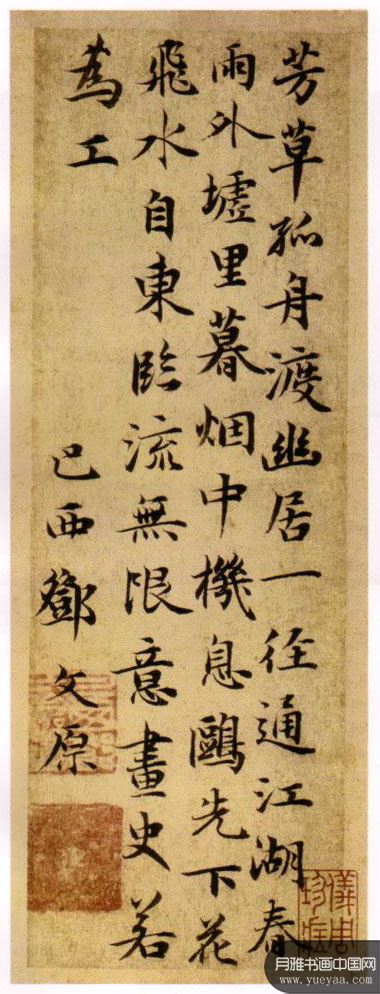 芳草孤舟渡幽居一径通江湖春
雨外墟里暮烟中機息鷗先下花
飛水自東臨流無限意畫史若
為工
巴西鄧文原
月雅书画中国网
www.yueyaa.com